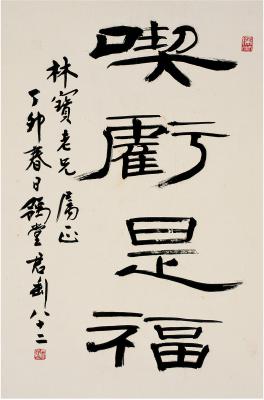 喫虧是福
林寶老兄屬正
丁卯春日鷗堂君劃八十二